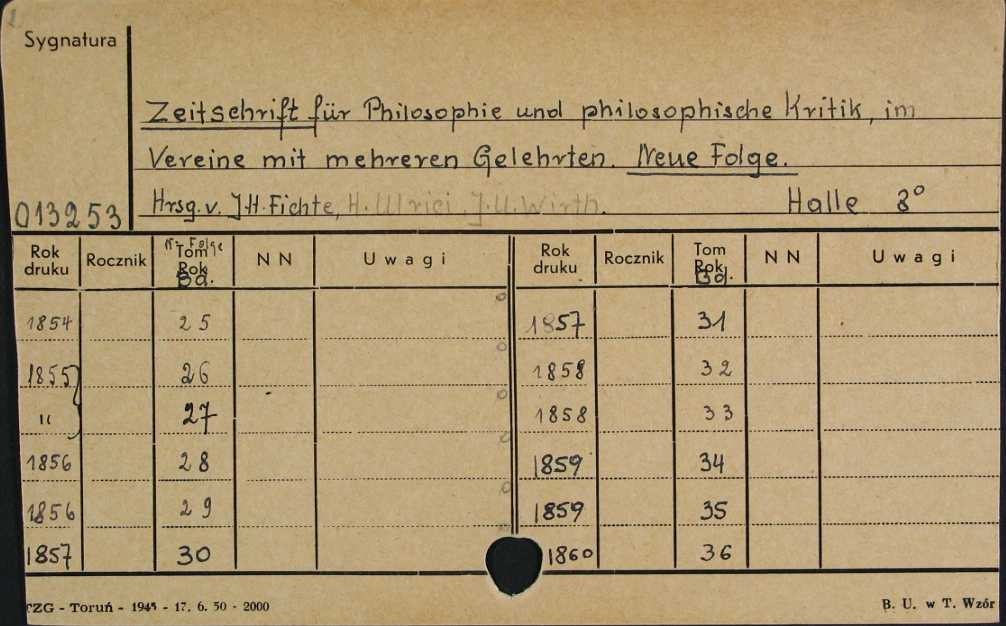 Sygnatura
Zeitschrift für Philosophie und philosophische Kritik, im
Vereine mit mehreren Gelehrten. Neue Folge.
Hrsg. v. J.H. Fichte, H. Ulrici, J.U. Wirth. Halle 8°
013253
Rok druku Rocznik N. Folge Tom Rok Bd. N N Uwagi Rok druku Rocznik Tom Rok Bd. N N Uwagi
1854 25 1857 31
1855 26 1858 32
" 27 1858 33
1856 28 1859 34
1856 29 1859 35
1857 30 1860 36
TZG - Toruń - 1945 - 17. 6. 50 - 2000 B. U. w T. Wzór